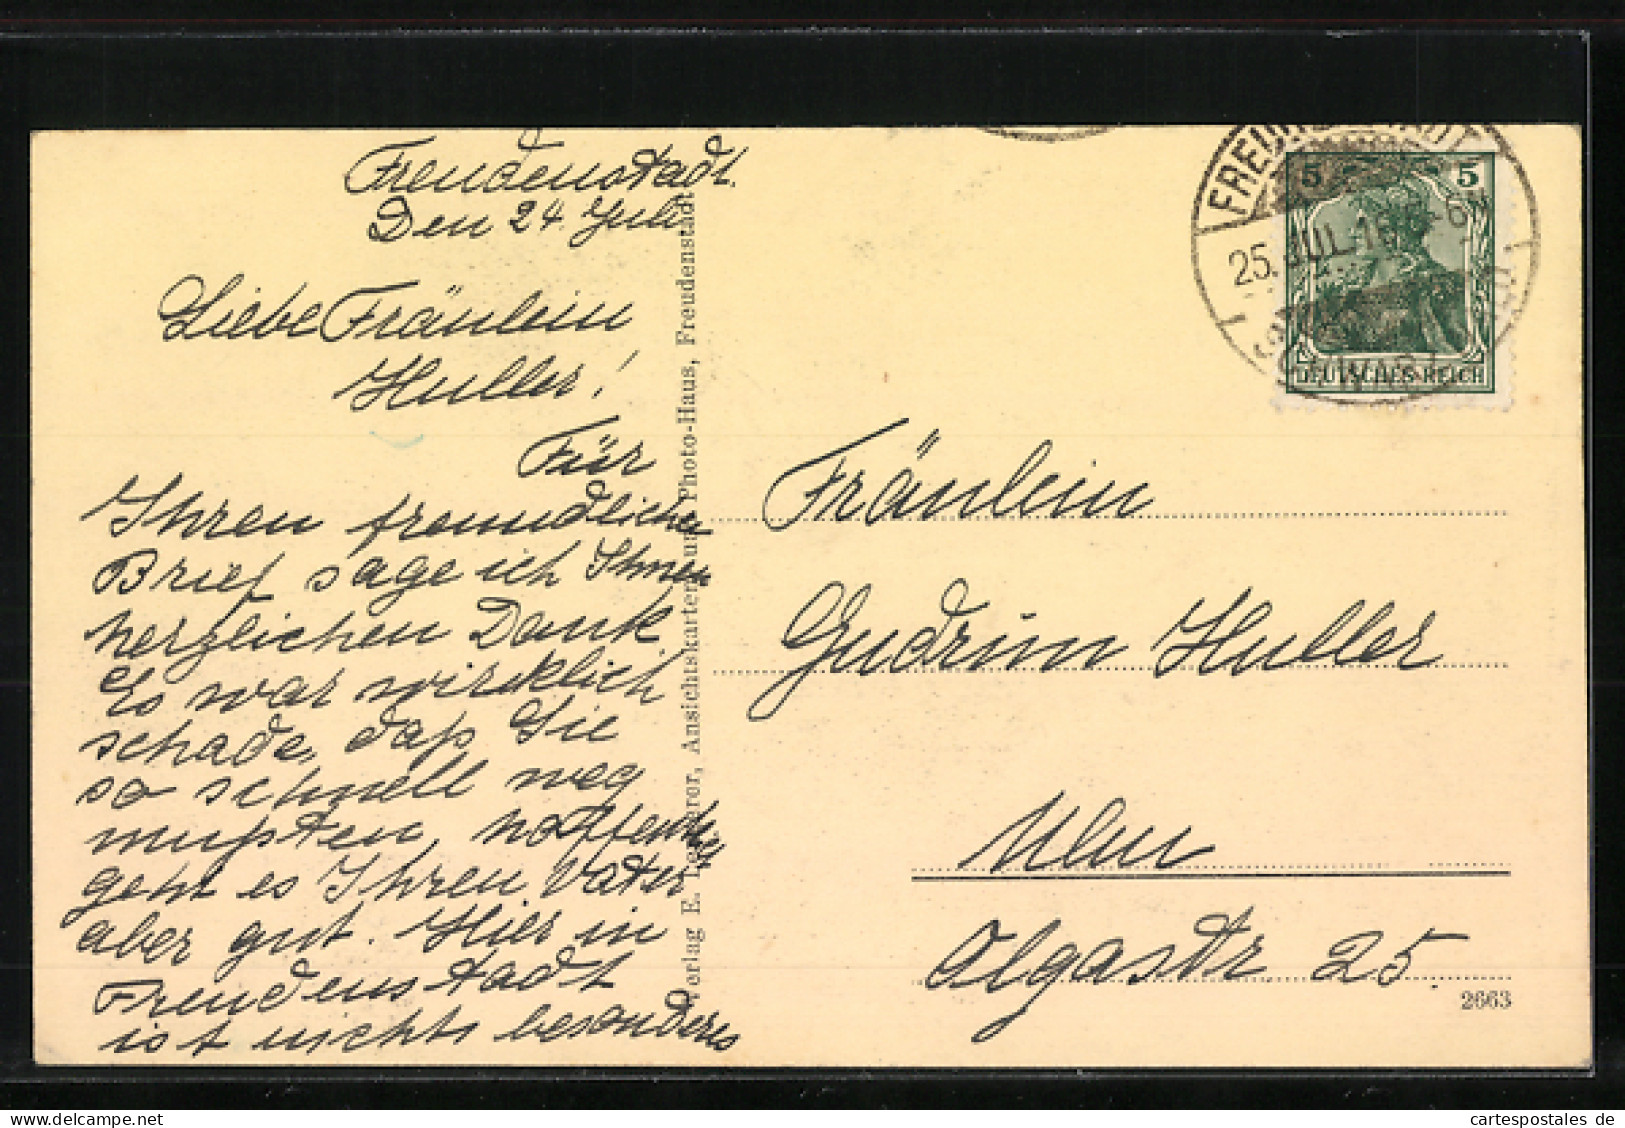 Freudenstadt.
Den 24. Juli
Liebe Fräulein
Huller!
Für
Ihren freundlichen
Brief sage ich Ihnen
herzlichen Dank
Es war wirklich
schade, daß Sie
so schnell weg
mußten, hoffentlich
geht es Ihren Vater
aber gut. Hier in
Freudenstadt
ist nichts besonderes
Verlag E. Ansichskarten- Photo-Haus, Freudenstadt
FREUDENSTADT
25. JUL. 16
SCHWARZW.
5 5
DEUTSCHES REICH
Fräulein
Gudrun Huller
Ulm
Olgastr. 25.
2663
cartespostales de